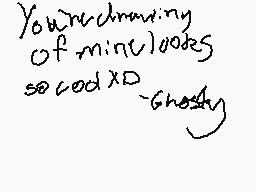 You're drawing
of mine looks
so cool XD
-Ghosty